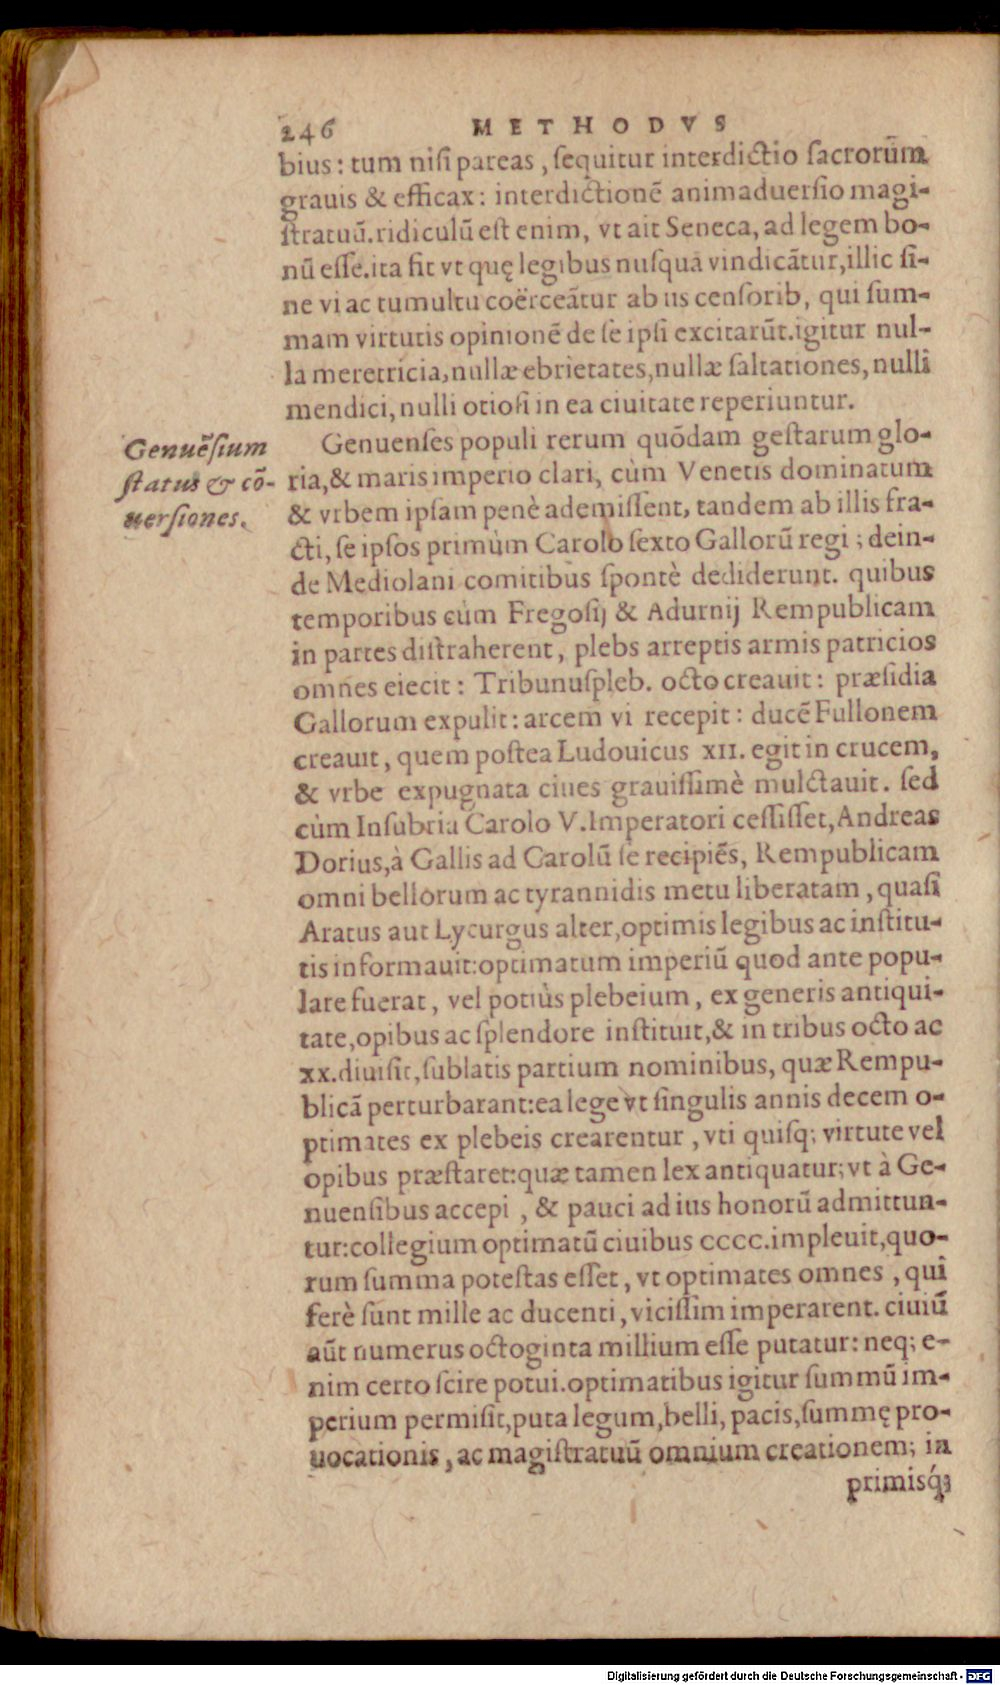 246 METHODVS
bius: tum nisi pareas, ſequitur interdictio ſacrorũm
grauis & efficax: interdictionẽ animaduerſio magi-
ſtratuũ. ridiculũ eſt enim, vt ait Seneca, ad legem bo-
nũ eſſe. ita fit vt quę legibus nuſquã vindicãtur, illic ſi-
ne vi ac tumultu coërceãtur ab iis cenſorib, qui ſum-
mam virtutis opinionẽ de ſe ipſi excitarũt. igitur nul-
la meretricia, nullæ ebrietates, nullæ ſaltationes, nulli
mendici, nulli otioſi in ea ciuitate reperiuntur.
Genuẽſium
ſtatus & cõ-
uerſiones.
Genuenſes populi rerum quõdam geſtarum glo-
ria, & maris imperio clari, cùm Venetis dominatum
& vrbem ipſam penè ademiſſent, tandem ab illis fra-
cti, ſe ipſos primùm Carolo ſexto Gallorũ regi; dein-
de Mediolani comitibus ſpontè dediderunt. quibus
temporibus cùm Fregoſij & Adurnij Rempublicam
in partes diſtraherent, plebs arreptis armis patricios
omnes eiecit: Tribunuſpleb. octo creauit: præſidia
Gallorum expulit: arcem vi recepit: ducẽ Fullonem
creauit, quem poſtea Ludouicus XII. egit in crucem,
& vrbe expugnata ciues grauiſſimè mulctauit. ſed
cùm Inſubria Carolo V. Imperatori ceſſiſſet, Andreas
Dorius, à Gallis ad Carolũ ſe recipiẽs, Rempublicam
omni bellorum ac tyrannidis metu liberatam, quaſi
Aratus aut Lycurgus alter, optimis legibus ac inſtitu-
tis informauit: optimatum imperiũ quod ante popu-
lare fuerat, vel potiùs plebeium, ex generis antiqui-
tate, opibus ac ſplendore inſtituit, & in tribus octo ac
xx. diuiſit, ſublatis partium nominibus, quæ Rempu-
blicã perturbarant: ea lege vt ſingulis annis decem o-
ptimates ex plebeis crearentur, vti quiſq; virtute vel
opibus præſtaret: quæ tamen lex antiquatur; vt à Ge-
nuenſibus accepi, & pauci ad ius honorũ admittun-
tur: collegium optimatũ ciuibus CCCC. impleuit, quo-
rum ſumma poteſtas eſſet, vt optimates omnes, qui
ferè ſunt mille ac ducenti, viciſſim imperarent. ciuiũ
aũt numerus octoginta millium eſſe putatur: neq; e-
nim certo ſcire potui. optimatibus igitur ſummũ im-
perium permiſit, puta legum, belli, pacis, ſummę pro-
uocationis, ac magiſtratuũ omnium creationem; in
primisq́;
Digitalisierung gefördert durch die Deutsche Forschungsgemeinschaft - DFG